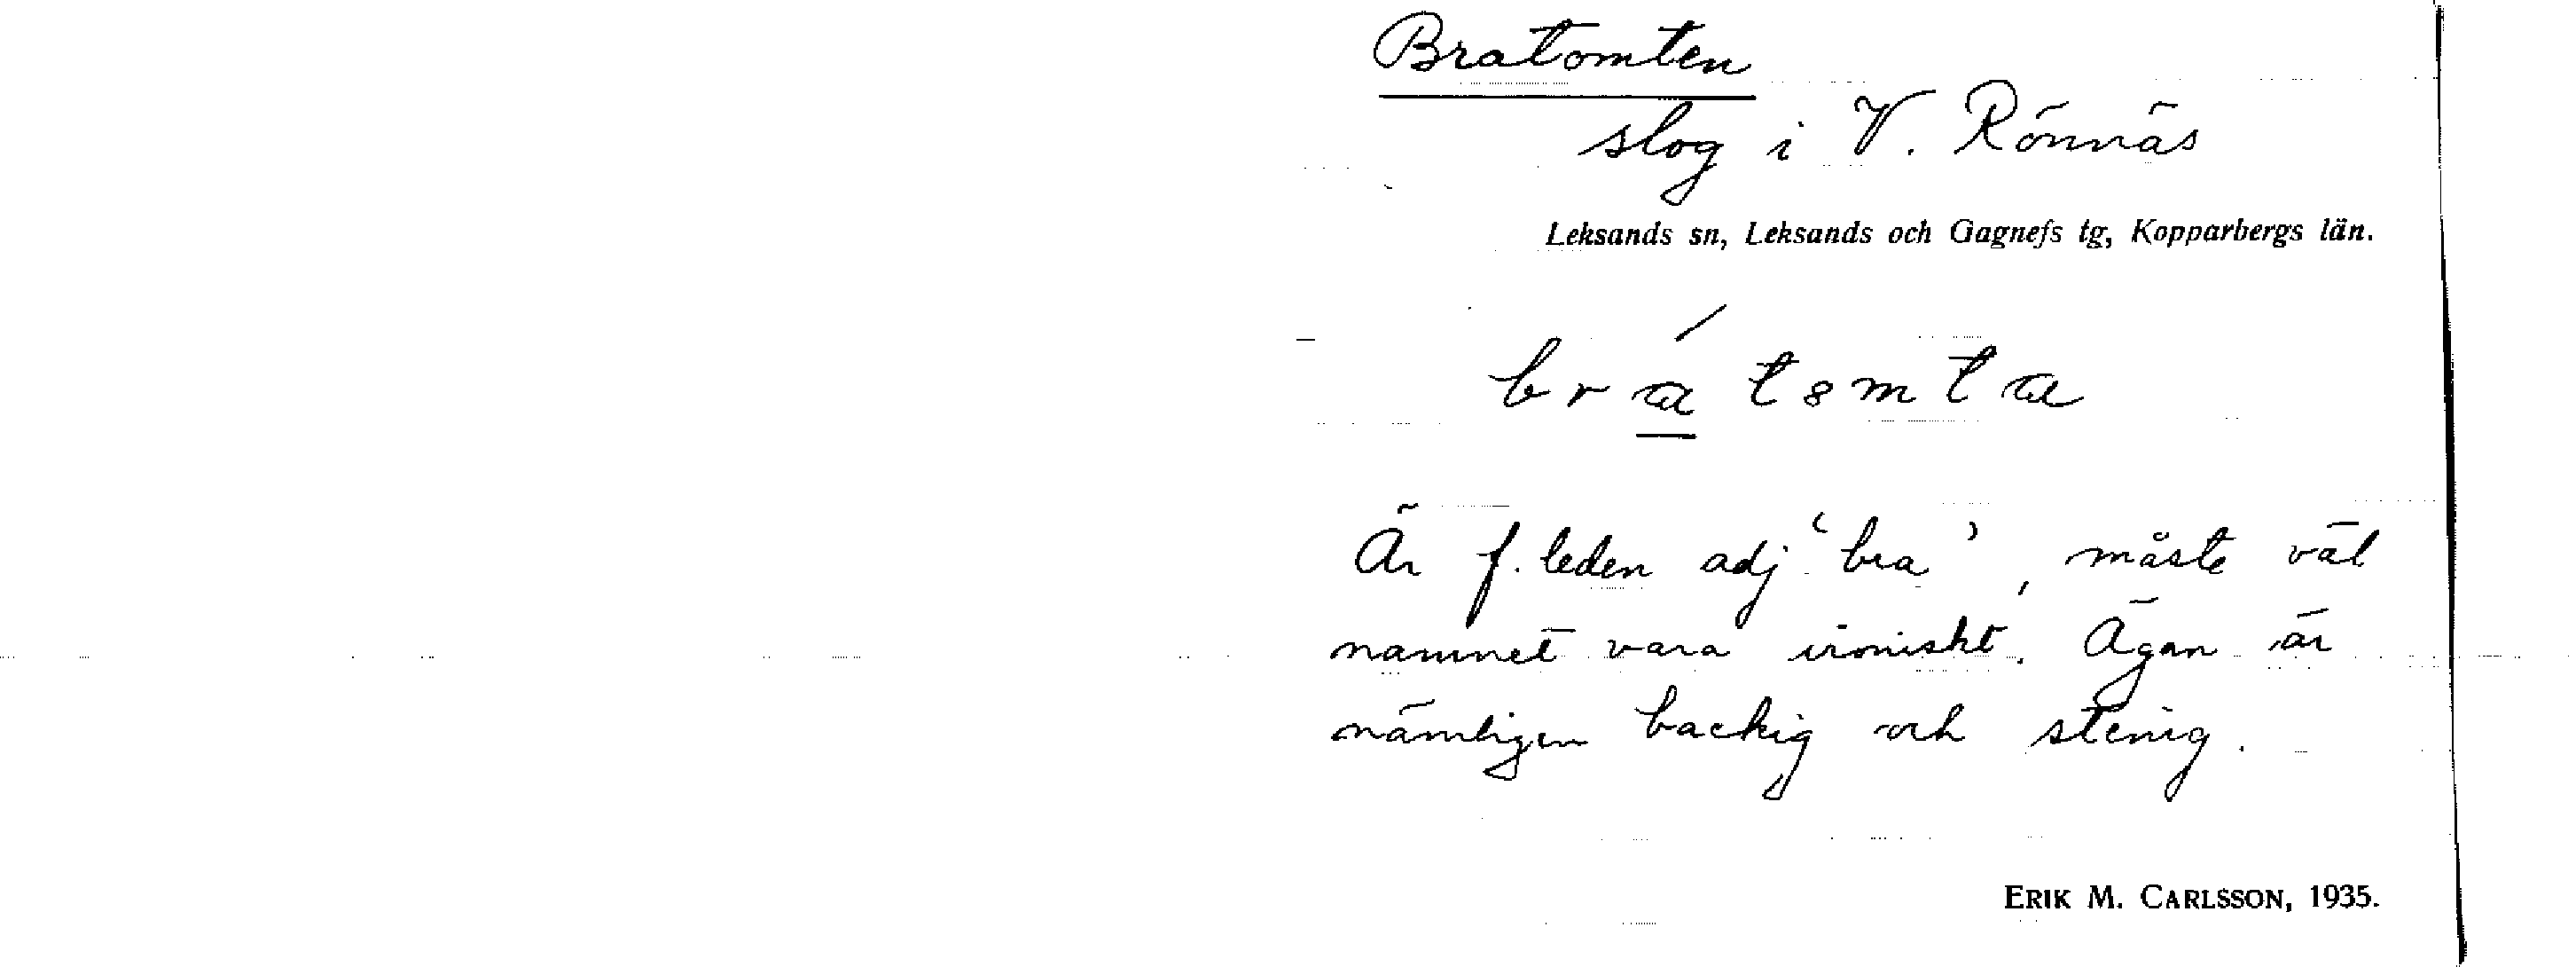 Bratomten
slog i V. Rönnäs
Leksands sn, Leksands och Gagnefs tg, Kopparbergs län.
Är f. leden adj. 'bra', måste väl
namnet vara ironiskt. Ägan är
nämligen backig och stenig.
ERIK M. CARLSSON, 1935.